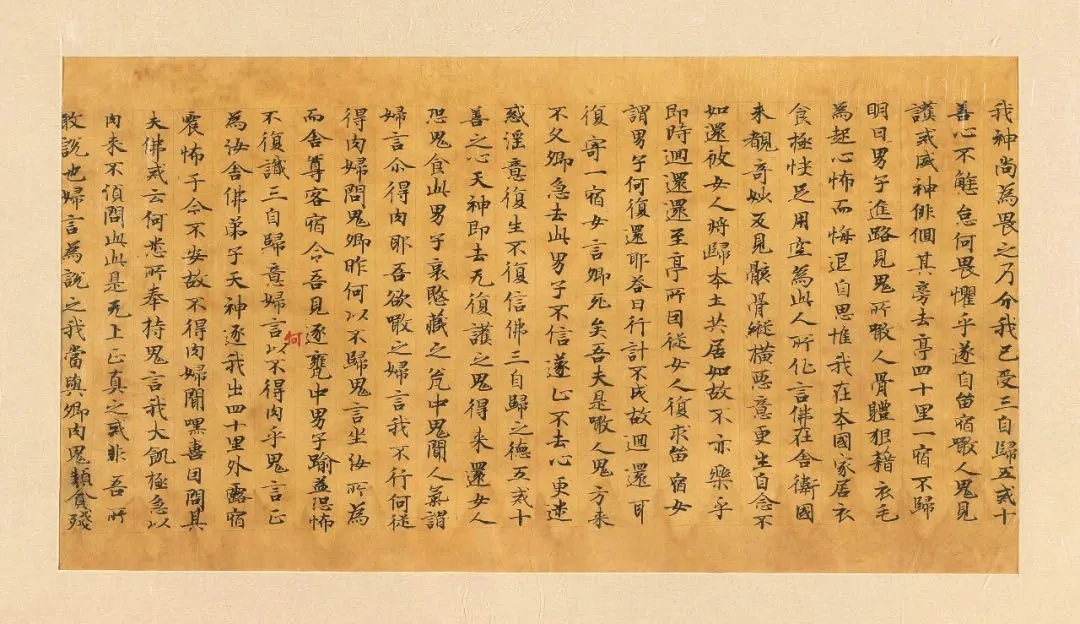 我神尚為畏之乃介我已受三自歸五戒十
善心不懈怠何畏懼乎遂自留宿噉人鬼見
護戒威神徘徊其旁去亭四十里一宿不歸
明日男子進路見鬼所噉人骨體狼藉衣毛
為起心怖而悔退自思惟我在本國家居衣
食極快足用空為此人所化言佛在舍衛國
未覩奇妙及見骸骨縱橫惡意更生自念不
如還彼女人將歸本土共居如故不亦樂乎
即時迴還還至亭所因從女人復求留宿女
謂男子何復還耶答曰行計不成故迴還耳
復寄一宿女言卿死矣吾夫是噉人鬼方來
不久卿急去此男子不信遂止不去心更迷
惑婬意復生不復信佛三自歸之德五戒十
善之心天神即去无復護之鬼得來還女人
恐鬼食此男子哀愍藏之瓮中鬼聞人氣謂
婦言尒得肉耶吾欲噉之婦言我不行何從
得肉婦問鬼卿昨何以不歸鬼言坐汝所為
而舍尊客宿令吾見逐甕中男子踰益恐怖
不復識三自歸意婦言何以不得肉乎鬼言正
為汝舍佛弟子天神逐我出四十里外露宿
震怖于今不安故不得肉婦聞嘿喜因問其
夫佛戒云何悉所奉持鬼言我大飢極急以
肉來不須問此此是无上正真之戒非吾所
敢說也婦言為說之我當與卿肉鬼類貪殘